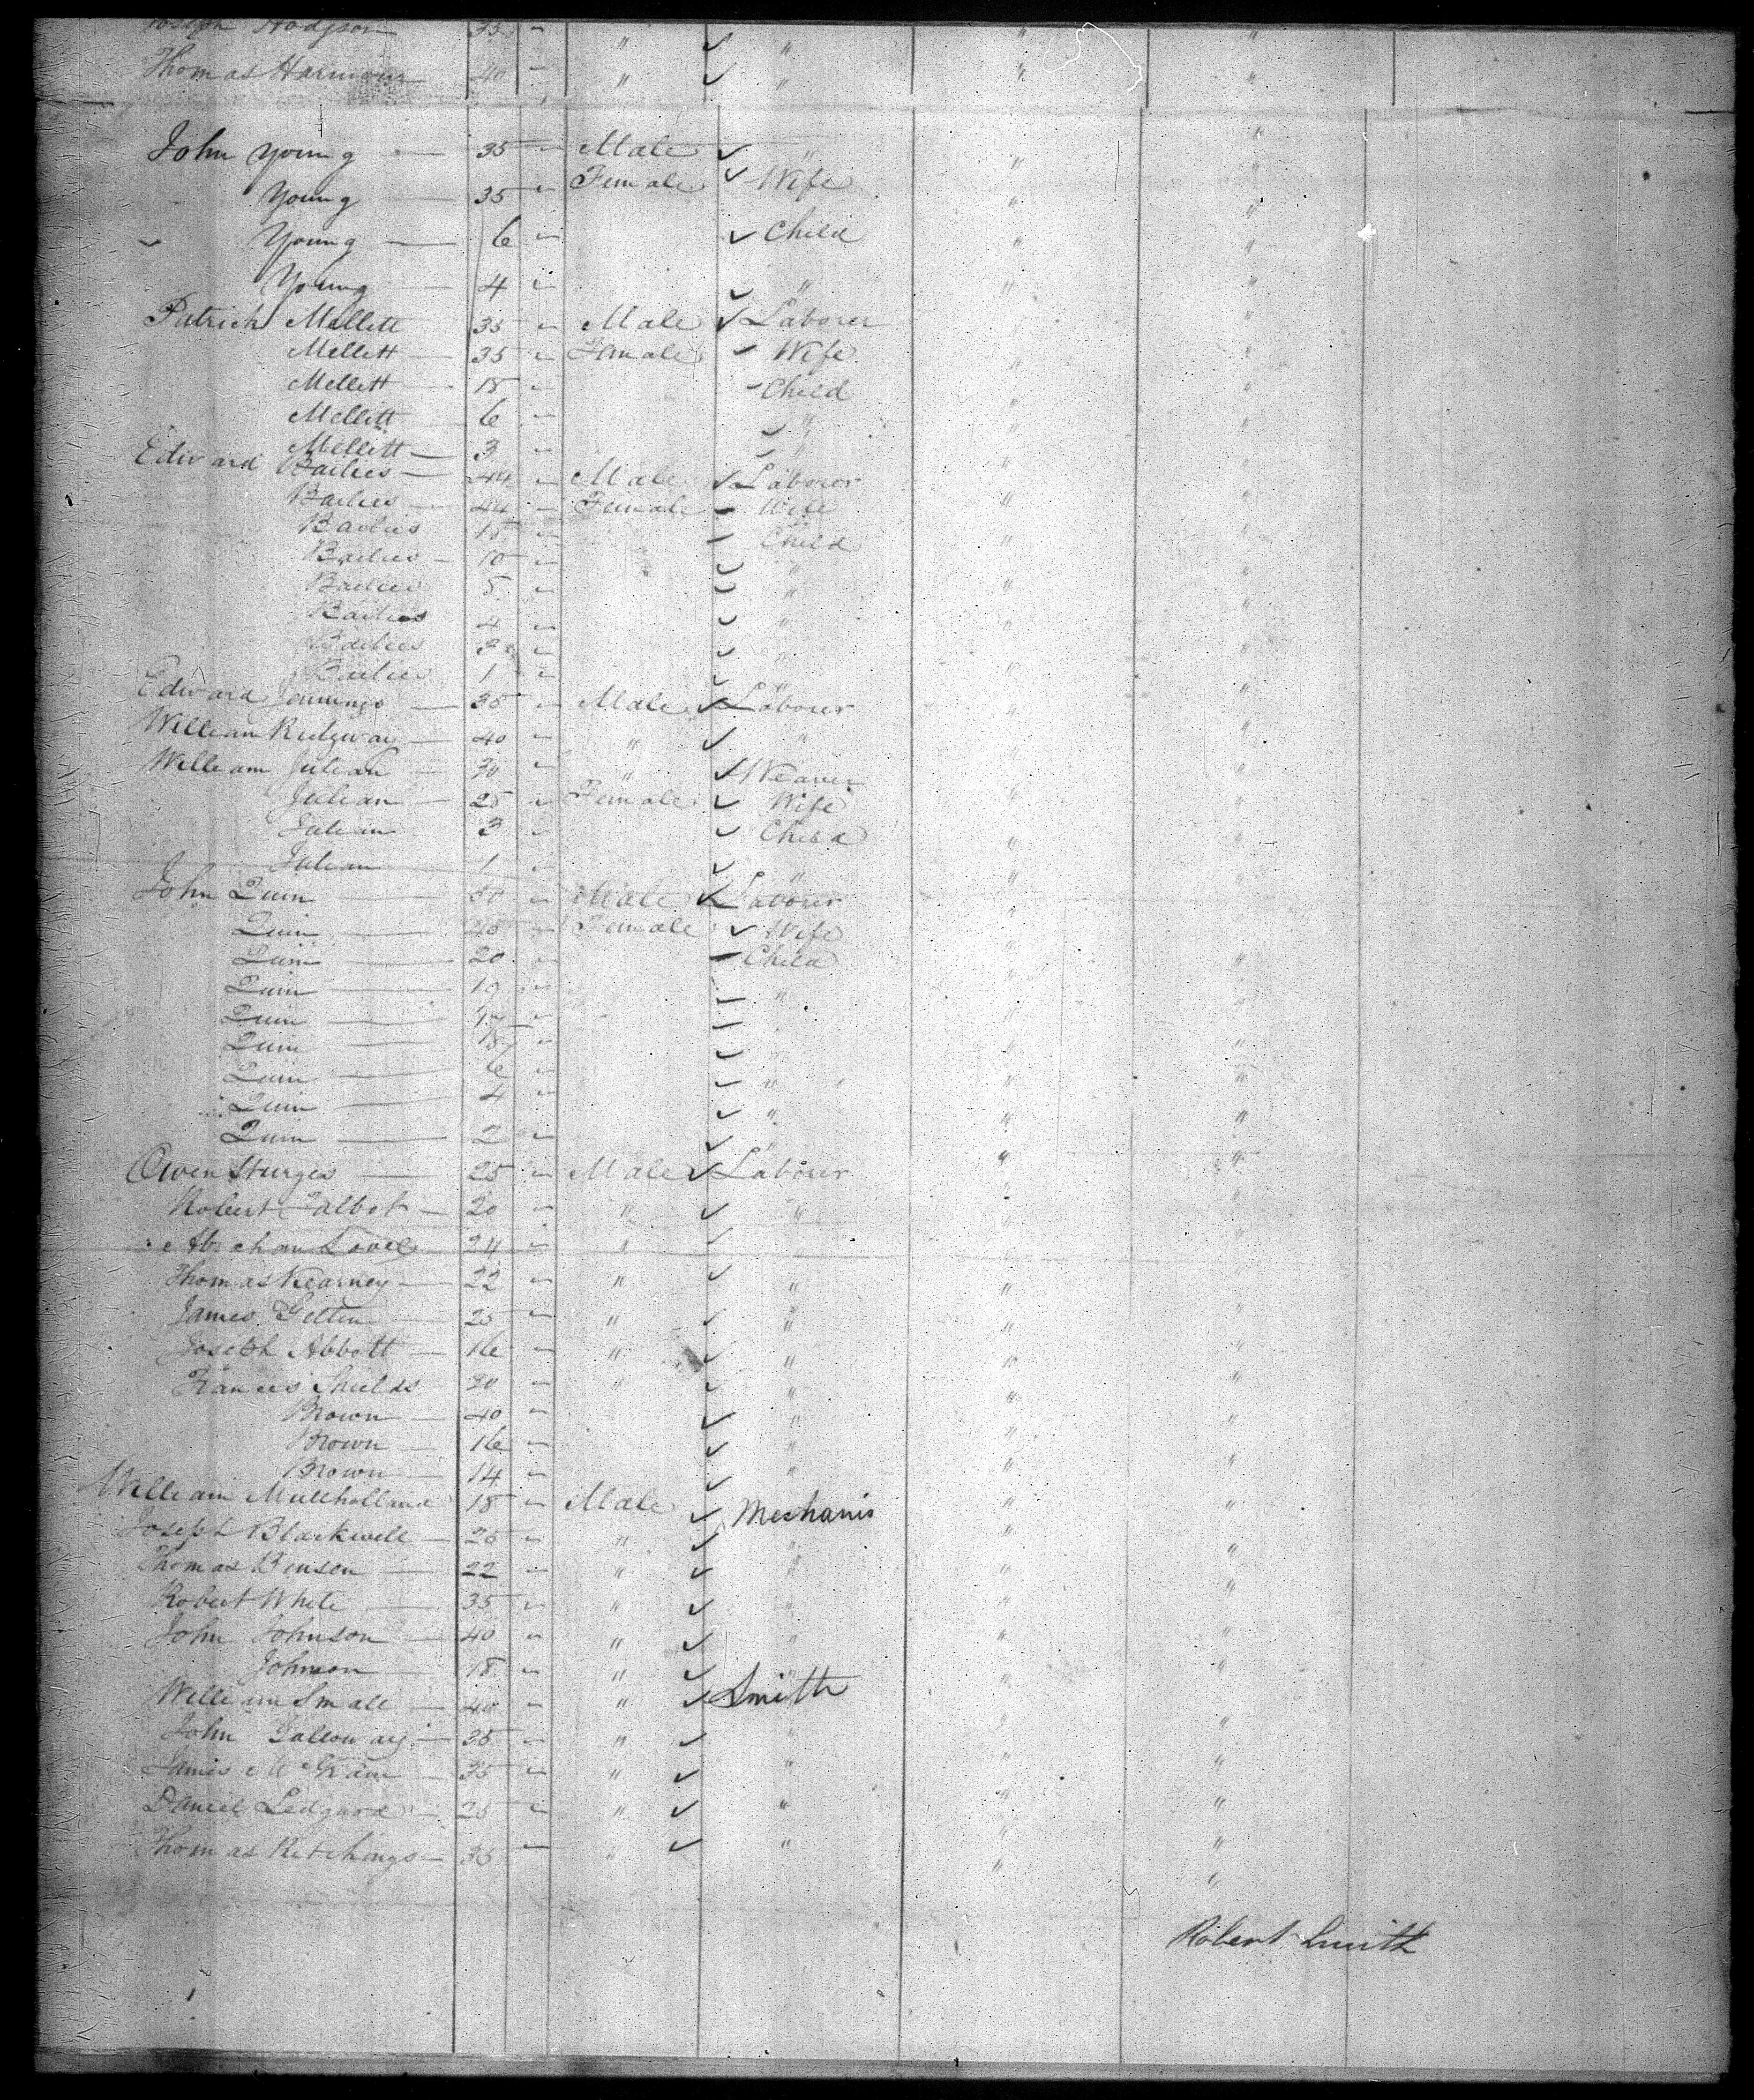 Joseph Hodgson 35 " " " " "
Thomas Harmour 40 " " " " "
John Young — 35 Male " " "
Young — 35 Female Wife " "
Young — 6 Child " "
Young — 4 " " "
Patrick Mellett 35 Male Laborer " "
Mellett — 35 Female Wife " "
Mellett — 18 Child " "
Mellett 6 " " "
Mellett — 3 " " "
Edward Bailies — 44 Male Laborer " "
Bailies 44 Female Wife " "
Bailies 15 Child " "
Bailies — 10 " " "
Bailies 5 " " "
Bailies 4 " " "
Bailies " " "
Bailies 1 " " "
Edward Jennings — 35 Male Laborer " "
William Ridgway — 40 " " " "
William Julian — 30 " Weaver " "
Julian — 25 Female Wife " "
Julian 3 Child " "
Julian — 1 " " "
John Quin — 50 Male Laborer " "
Quin — 45 Female Wife " "
Quin — 20 Child " "
Quin — 19 " " "
Quin — 17 " "
Quin — " "
Quin — 6 " " "
Quin — 4 " " "
Quin — 2 " " "
Owen Sturges — 25 Male Laborer " "
Robert Talbot — 20 " " " "
Abraham Lovel 24 " " " "
Thomas Kearney — 22 " " " "
James 25 " " " "
Joseph Abbott — 16 " " " "
Frances Shields 20 " " " "
Brown — 40 " " "
Brown — 16 " " "
Brown — 14 " " "
William Mullholland 18 Male Mechanic " "
Joseph Blackwell — 26 " " " "
Thomas Benson — 22 " " " "
Robert White — 35 " " " "
John Johnson — 40 " " " "
Johnson 18 " " " "
William Small — 40 " Smith " "
John Galloway — 35 " " " "
James 35 " " " "
Daniel Ledgard — 25 " " " "
Thomas Kitchings — 35 " " " "
Robert Smith